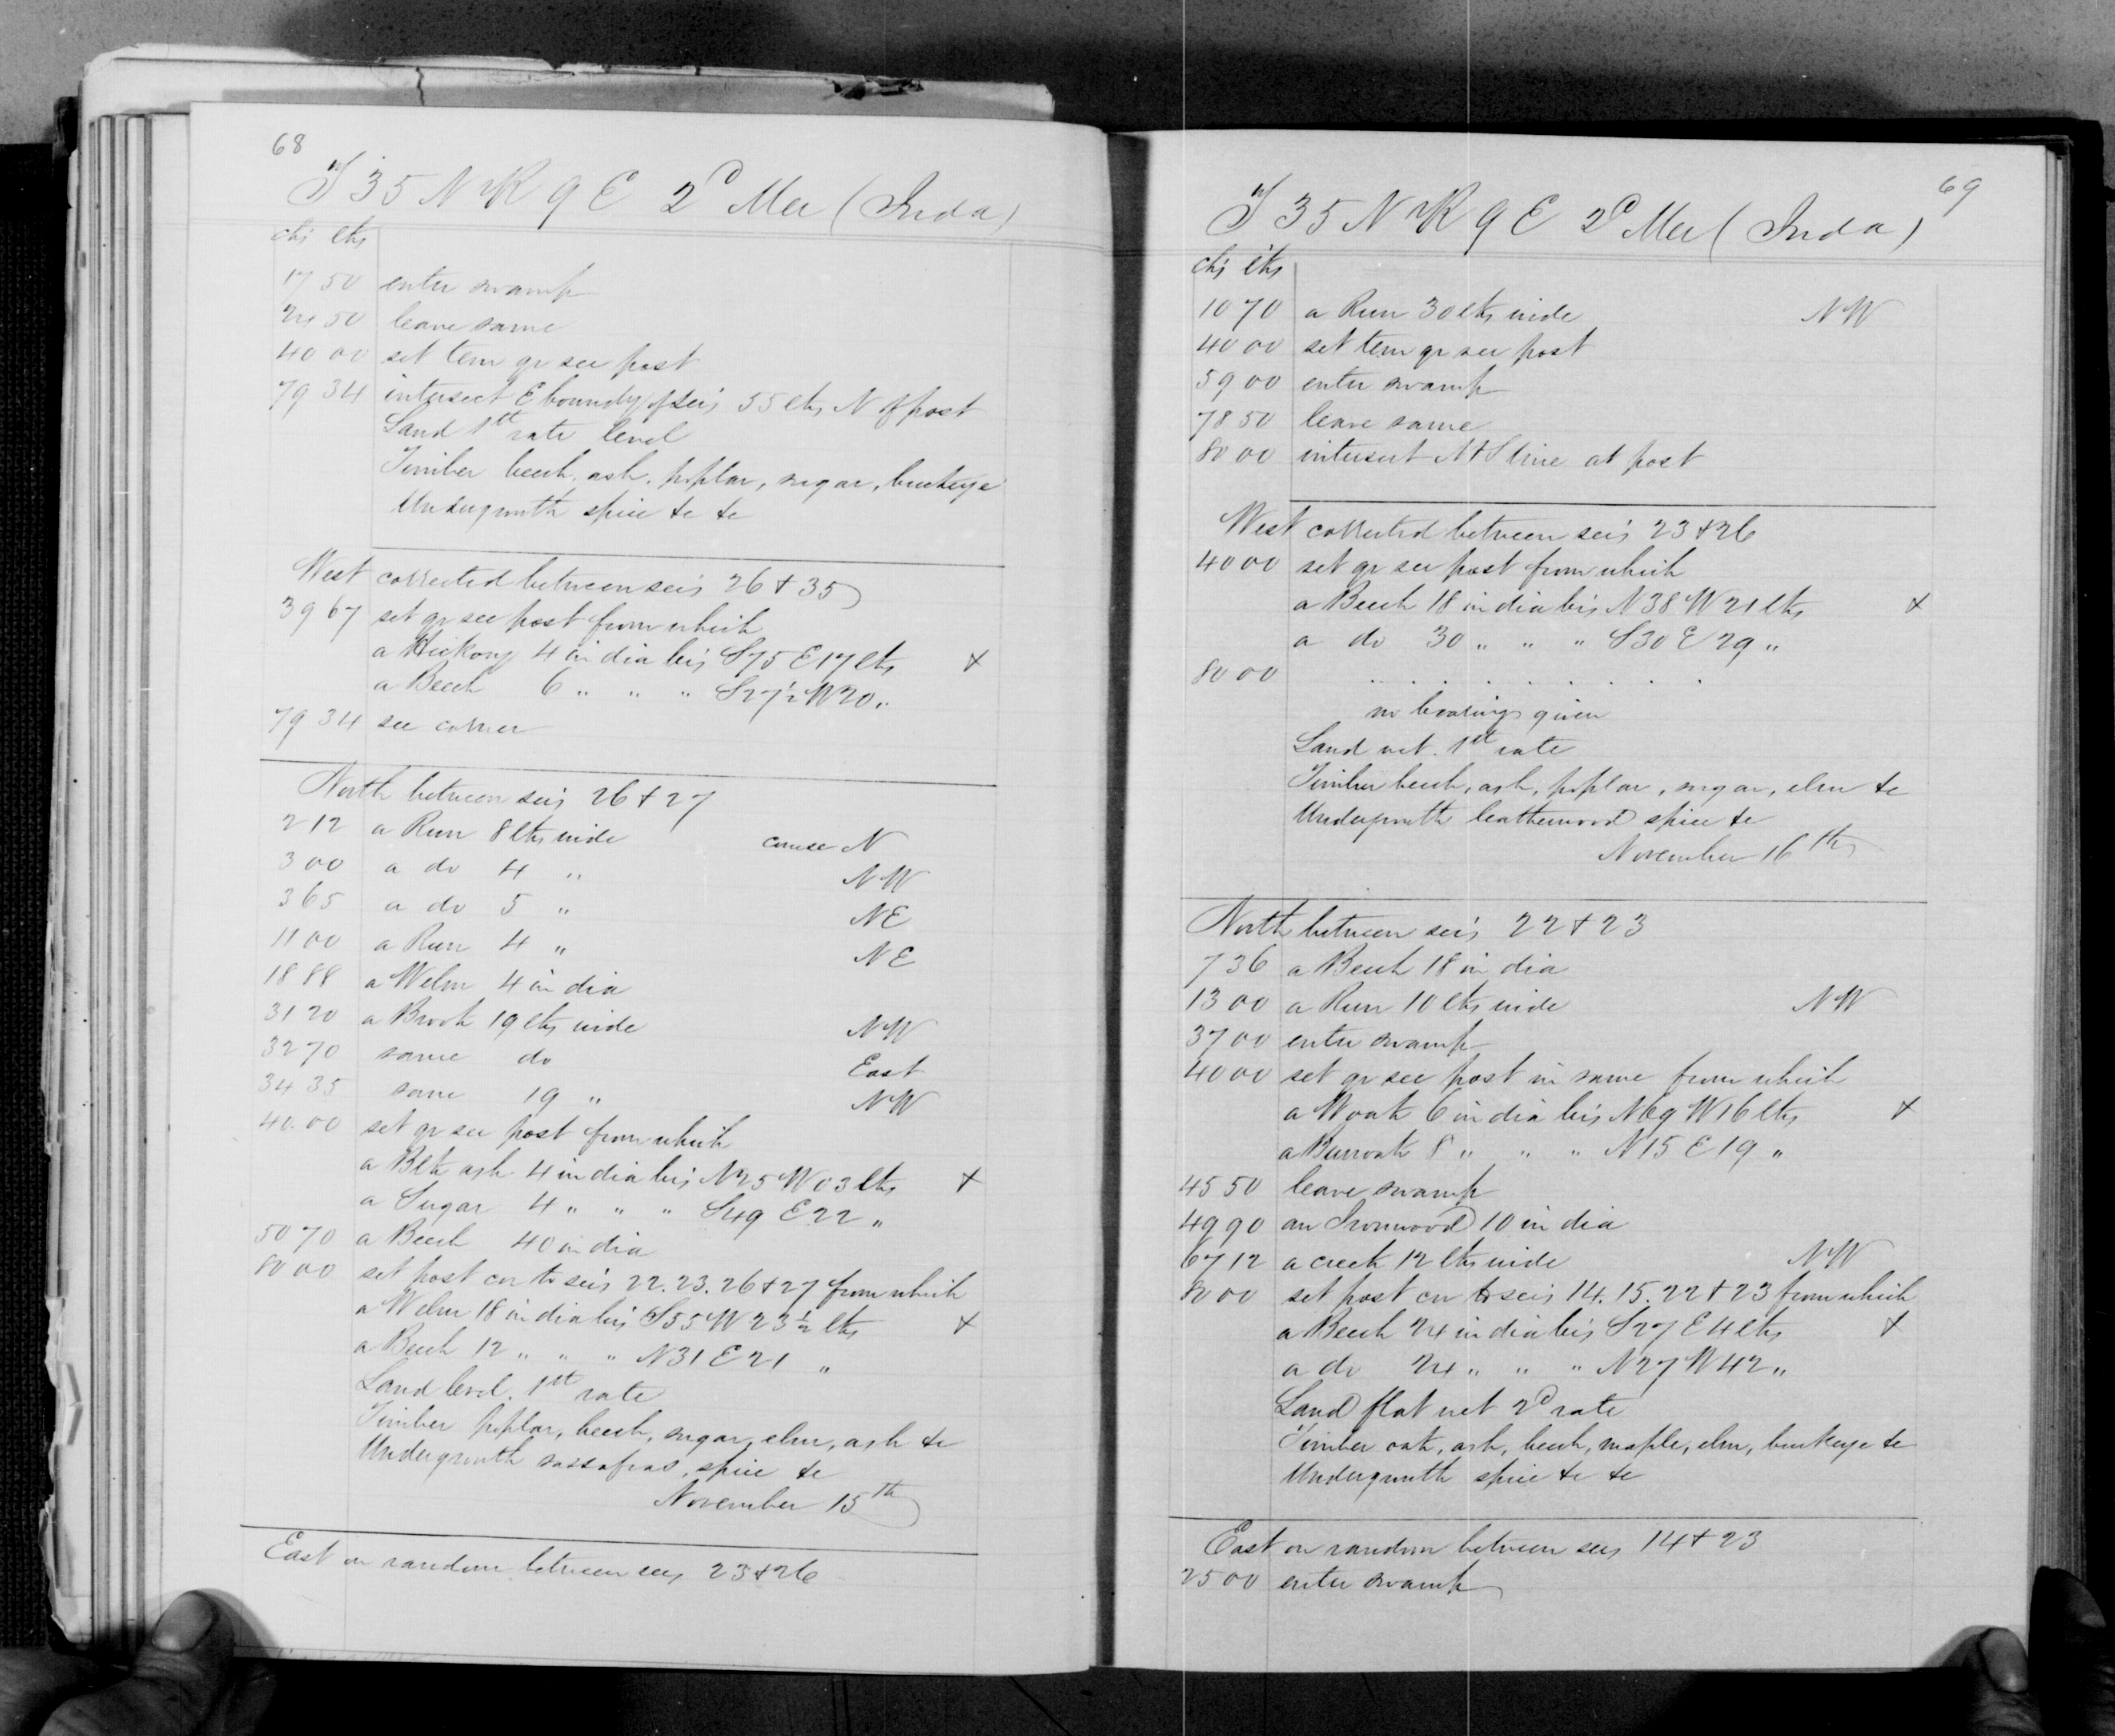 68
T 35 N R 9 E 2d Mer (Inda)
chs lks
17 50 enter swamp
24 50 leave same
40 00 set tem qr sec post
79 34 intersect E boundy of secs 55 lks N of post
Land 1st rate level
Timber beech, ash, poplar, sugar, buckeye
Undergrowth spice &c &c
West corrected between secs 26 & 35
39 67 set qr sec post from which
a Hickory 4 in dia brs S 75 E 17 lks +
a Beech 6 " " " S 27½ W 20 "
79 34 sec corner
North between secs 26 & 27
2 12 a Run 8 lks wide course N
3 00 a do 4 " NW
3 65 a do 5 " NE
11 00 a Run 4 " NE
18 88 a Welm 4 in dia
31 20 a Brook 19 lks wide NW
32 70 same do East
34 35 same 19 " NW
40.00 set qr sec post from which
a Blk ash 4 in dia brs N 25 W 03 lks +
a Sugar 4 " " " S 49 E 22 "
50 70 a Beech 40 in dia
80 00 set post cor to secs 22.23.26 & 27 from which
a Welm 18 in dia brs S 55 W 23½ lks +
a Beech 12 " " " N 31 E 21 "
Land level. 1st rate
Timber poplar, beech, sugar, elm, ash &c
Undergrowth sassafras, spice &c
November 15th
East on random between secs 23 & 26
69
T 35 N R 9 E 2d Mer (Inda)
chs lks
10 70 a Run 30 lks wide NW
40 00 set tem qr sec post
59 00 enter swamp
78 50 leave same
80 00 intersect N & S line at post
West corrected between secs 23 & 26
40 00 set qr sec post from which
a Beech 18 in dia brs N 38 W 21 lks +
a do 30 " " " S 30 E 29 "
80 00 . . . . . . . . . .
no bearings given
Land wet. 1st rate
Timber beech, ash, poplar, sugar, elm &c
Undergrowth leatherwood spice &c
November 16th
North between secs 22 & 23
7 36 a Beech 18 in dia
13 00 a Run 10 lks wide NW
37 00 enter swamp
40 00 set qr sec post in same from which
a Woak 6 in dia brs N 69 W 16 lks +
a Burroak 8 " " " N 15 E 19 "
45 50 leave swamp
49 90 an Ironwood 10 in dia
67 12 a creek 12 lks wide NW
80 00 set post cor to secs 14.15.22 & 23 from which
a Beech 24 in dia brs S 27 E 4 lks +
a do 24 " " " N 27 W 42 "
Land flat wet 2d rate
Timber oak, ash, beech, maple, elm, buckeye &c
Undergrowth spice &c &c
East on random between secs 14 & 23
25 00 enter swamp